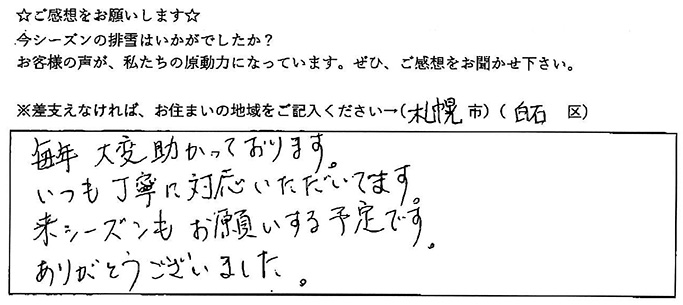 ☆ご感想をお願いします☆
今シーズンの排雪はいかがでしたか？
お客様の声が、私たちの原動力になっています。ぜひ、ご感想をお聞かせ下さい。
※差支えなければ、お住まいの地域をご記入ください→(札幌市)(白石 区)
毎年 大変助かっております。
いつも丁寧に対応いただいてます。
来シーズンもお願いする予定です。
ありがとうございました。